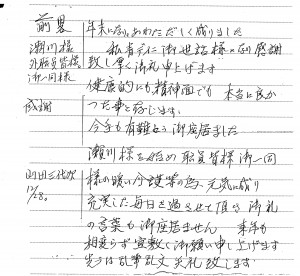 前略
瀬川様
外職員皆様
御一同様
感謝
山田三代次
12/28。
年末に成り、あわただしく成りました
私有元に御世話様に成り感謝
致し厚く御礼申上げます
健康的にも精神面でも 本当に良か
った事と存じます。
今年も有難とう御座居ました
瀬川様を始め職員皆様御一同
様の暖い介護等の為、元気に成り
充実した毎日を過させて頂き御礼
の言葉も御座居ません 来年も
相変らず宜敷く御願い申し上げます
先づは乱筆乱文失礼致します